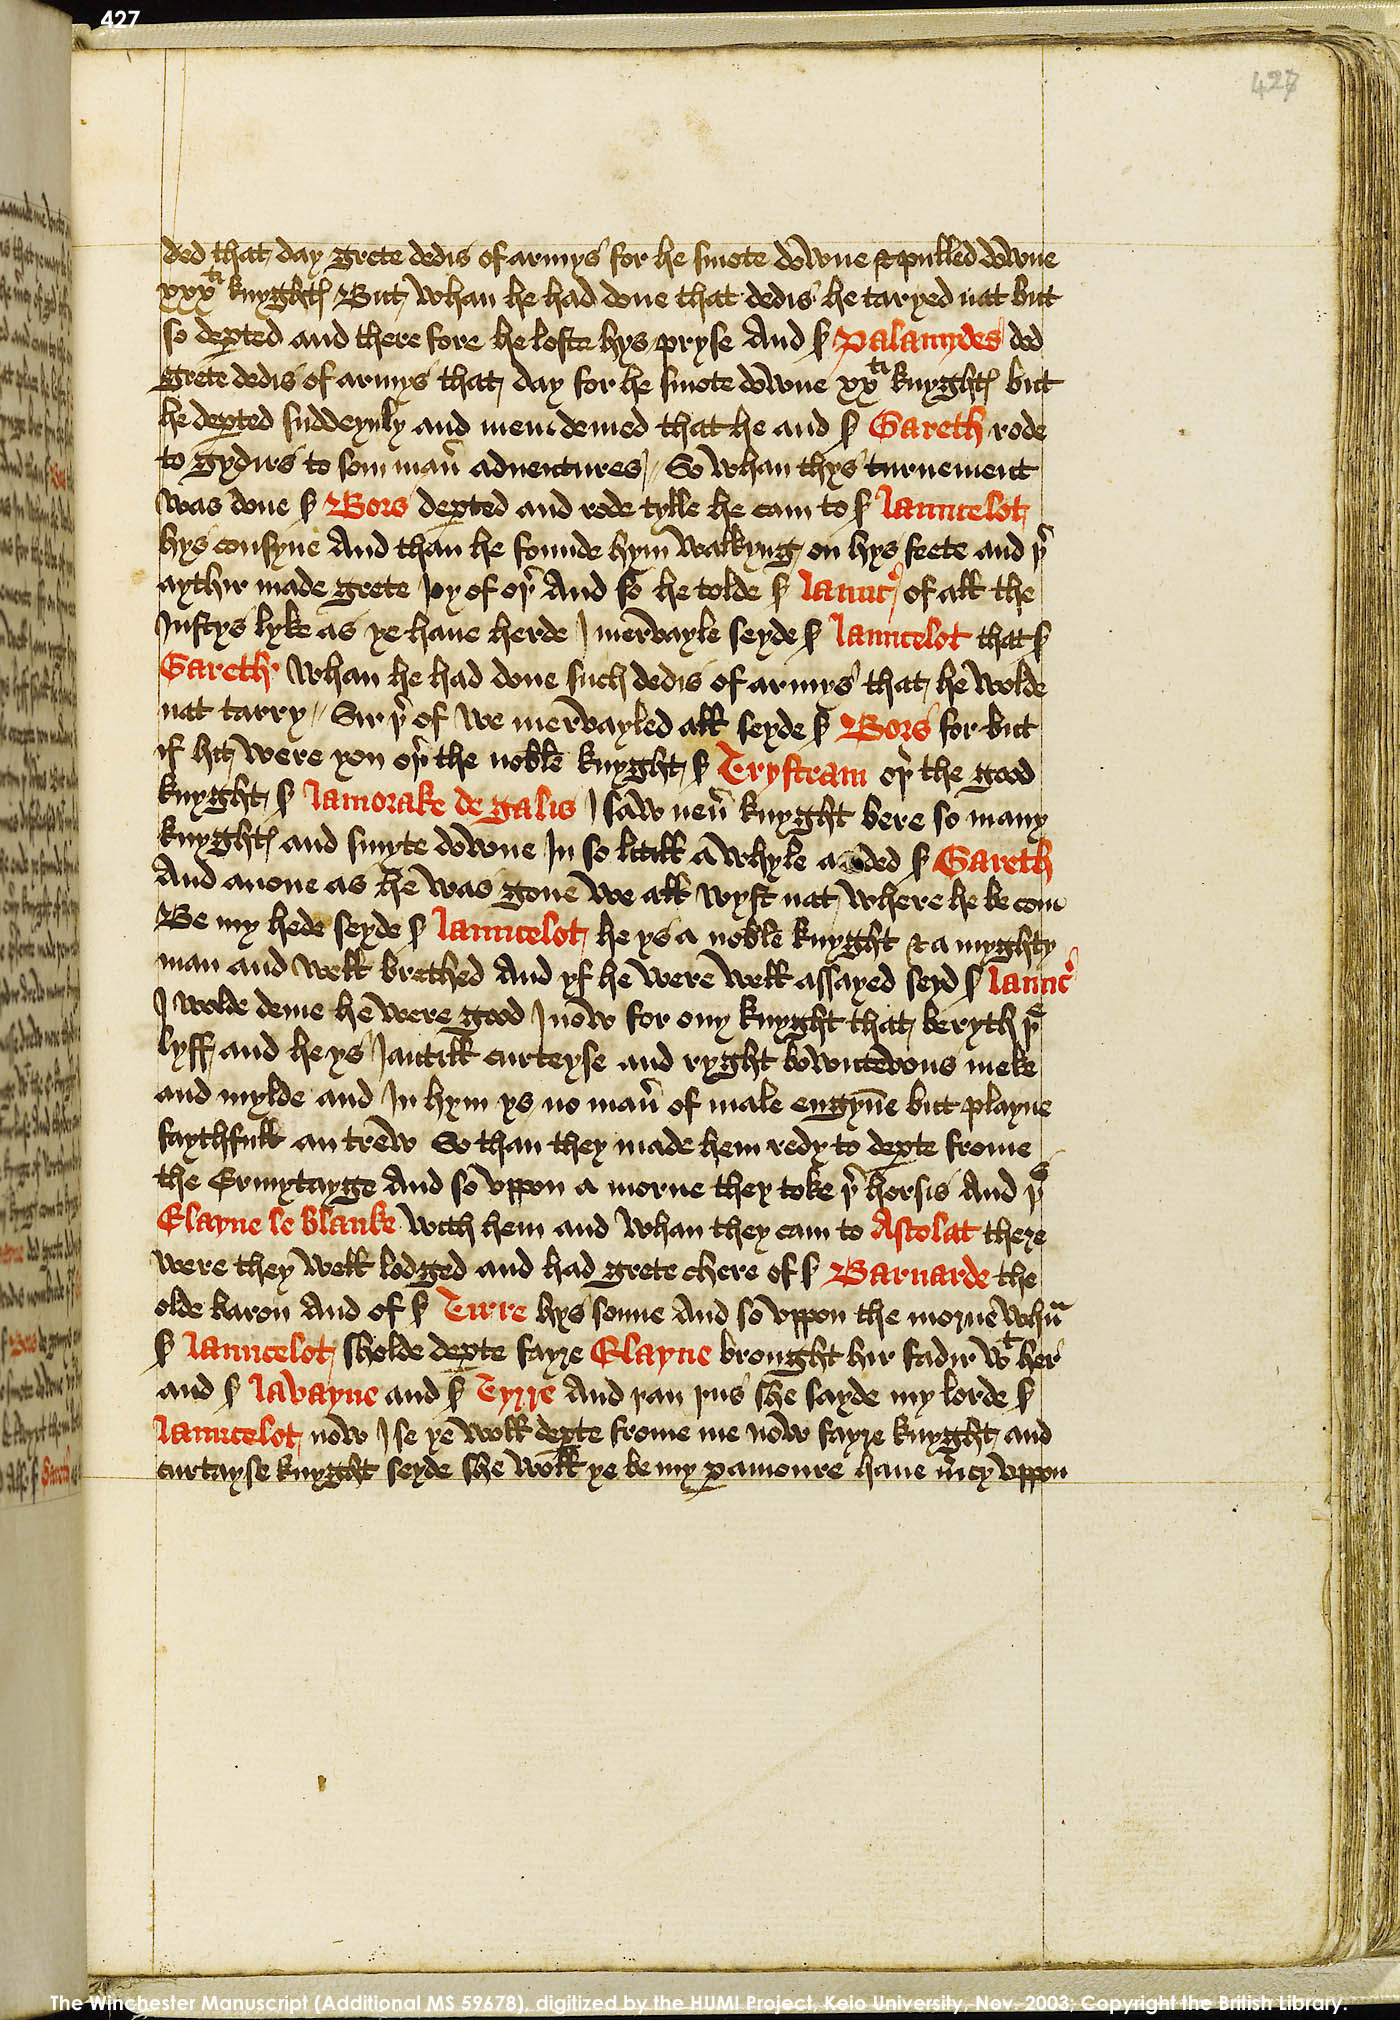 427
427
ded that day grete dedis of armys for he smote downe & pulled downe
xxxti knyghtes But whan he had done that dedis he taryed nat but
so deꝑted and there fore he loste hys pryse And ẜ Palamydes ded
grete dedis of armys that day for he smote downe xxti knyghtes but
he deꝑted suddeynly and men demed that he and ẜ Gareth rode
to gydirs to som man̄ adventures // So whan thys turnement
was done ẜ Bors deꝑted and rode tylle he cam to ẜ Launcelot
hys cousyne And than he founde hym walkyng on hys feete and þr
aythir made grete Joy of oþr And so he tolde ẜ Launc̉ of all the
Justys lyke as ye haue herde I mervayle seyde ẜ Launcelot that ẜ
Gareth whan he had done such dedis of armys that he wolde
nat tarry // Sir þr of we mervayled all seyde ẜ Bors for but
if hit were you oþr the noble knyght ẜ Trystram oþr the good
knyght ẜ Lamorake de galis I saw neu̓ knyght bere so many
knyghtes and smyte downe In so litill a whyle as ded ẜ Gareth
And anone as he was gone we all wyst nat where he be com
Be my hede seyde ẜ Launcelot he ys a noble knyght & a myghty
man and well brethed And yf he were well assayed seyd ẜ Launc̉
I wolde deme he were good Inow for ony knyght that beryth þe
lyff and he ys Jantill curteyse and ryght bownteuous meke
and mylde and In hym ys no man̄ of male engyne but playne
faythfull an trew So than they made hem redy to deꝑte frome
the Ermytayge And so vppon a morne they toke þr horsis And þs
Elayne le Blanke with hem and whan they cam to Astolat there
were they well lodged and had grete chere of ẜ Barnarde the
olde baron And of ẜ Tirre hys sonne And so vppon the morne whan̄
ẜ Launcelot sholde deꝑte fayre Elayne brought hir fadir wt her
and ẜ Lavayne and ẜ Tyrre And þan þus she sayde my lorde ẜ
Launcelot now I se ye woll deꝑte frome me now fayre knyght and
curtayse knyght seyde she woll ye be my ꝑamoure haue m̉cy vppon
The Winchester Manuscript (Additional MS 59678), digitized by the HUMI Project, Keio University, Nov. 2003; Copyright the British Library.